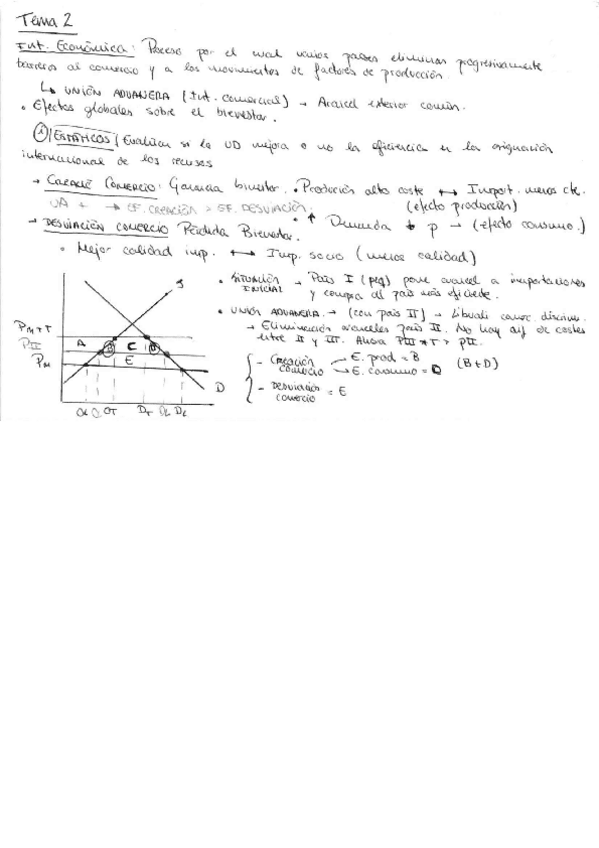 Tema 2
Int. Económica: Proceso por el cual varios países eliminan progresivamente
barreras al comercio y a los movimientos de factores de producción.
↳ UNIÓN ADUANERA (Int. comercial) → Arancel exterior común.
• Efectos globales sobre el bienestar.
① ESTÁTICOS / Evaluar si la UD mejora o no la eficiencia en la asignación
internacional de los recursos
→ Comercio: Ganancia bienestar. • Producción alto coste ↔ Import. menos cte.
UA + → EF. CREACIÓN > EF. DESVIACIÓN. (efecto producción)
• ↑ Demanda ↓ p → (efecto consumo.)
→ DESVIACIÓN COMERCIO Pérdida Bienestar.
• Mejor calidad imp. ↔ Imp. socio (menos calidad)
• SITUACIÓN INICIAL → País I (peq) pone arancel a importaciones
y compra al país más eficiente.
• UNIÓN ADUANERA. → (con país II) → comerc. discrim.
→ Eliminación aranceles país II. No hay dif de costes
entre II y III. Ahora PIII + T > PII.
- Creación comercio → E. prod = B
→ E. consumo = D (B+D)
- Desviación comercio = E
S
PM + T
PII
PM
A B C D
E
D